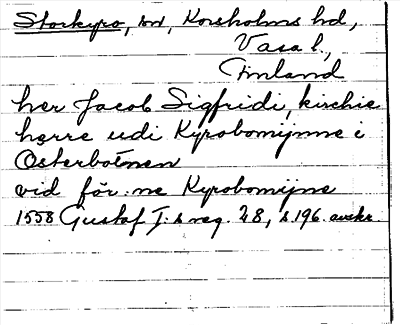 Storkyro, sn, Korsholms hd,
Vasa l.,
Finland
her Jacob Sigfridi, kirchie
herre udi Kyrobominne i
Österbotnen
vid för:ne Kyrobomijne
1558 Gustaf I:s reg. 28, s. 196. avskr.